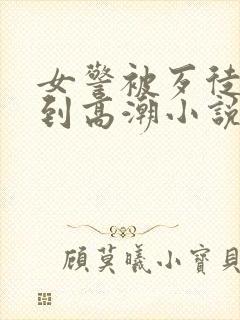 女警被歹徒
到高潮小說
顧莫曦小寶貝